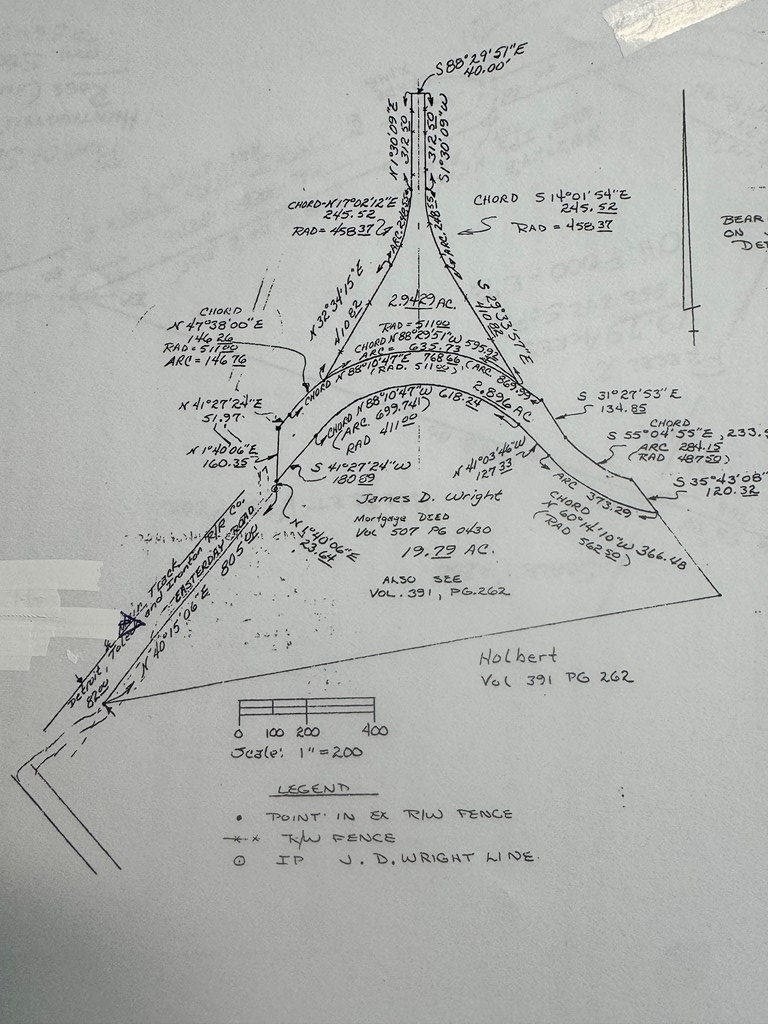 S 88°29'51"E
40.00'
N 1°30'09"E
312.50
S 1°30'09"W
312.50
CHORD-N 17°02'12"E
245.52
RAD = 458.37
ARC. 248.55
CHORD S 14°01'54"E
245.52
RAD = 458.37
ARC. 248.55
BEAR
ON
DE
N 32°34'15"E
410.82
S 29°33'57"E
410.82
2.9429 AC.
CHORD
N 47°38'00"E
146.26
RAD = 511.00
ARC = 146.76
RAD = 511.00
CHORD N 88°29'51"W 595.92
ARC = 635.73
CHORD N 88°10'47"E 768.66 (ARC 869.99)
(RAD. 511.00)
2.896 AC
N 41°27'24"E
51.97
S 31°27'53"E
134.85
CHORD N 88°10'47"W 618.24
(ARC. 699.741)
RAD 411.00
CHORD
S 55°04'55"E, 233.9
ARC 284.15
(RAD 487.50)
N 1°40'06"E
160.35
S 41°27'24"W
180.59
N 41°03'46"W
127.33
S 35°43'08"
120.32
ARC 373.29
CHORD
N 60°14'10"W 366.48
(RAD 562.50)
James D. Wright
Mortgage DEED
Vol 507 PG 0430
19.79 AC.
N 1°40'06"E
23.64
ALSO SEE
VOL. 391, PG. 262
Track
Detroit, Toledo and Ironton R/R Co.
EASTERDAY ROAD
N 40°15'06"E 805.00
82.00
Holbert
Vol 391 PG 262
0 100 200 400
Scale: 1" = 200
LEGEND
• POINT IN EX R/W FENCE
-x- x R/W FENCE
⊙ IP J. D. WRIGHT LINE.